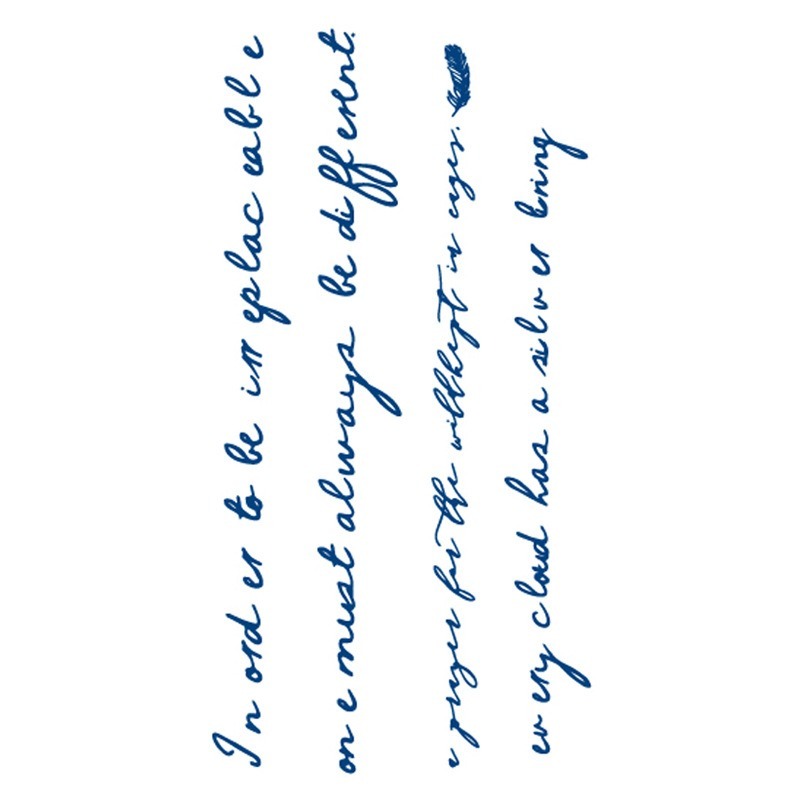 In order to be irreplaceable
one must always be different.
a prayer for the in cages.
every cloud has a silver lining